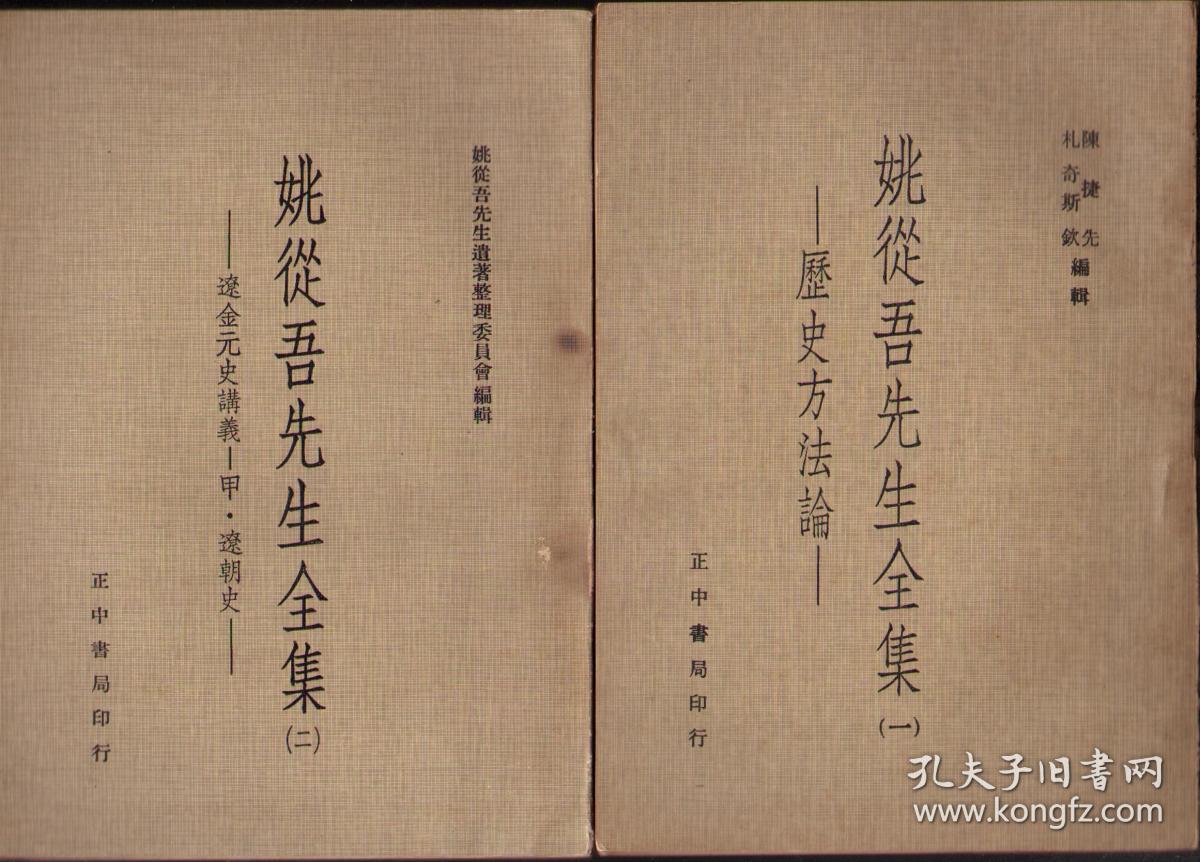 陳捷先
札奇斯欽
編輯
姚從吾先生全集(一)
——歷史方法論——
正中書局印行
姚從吾先生遺著整理委員會編輯
姚從吾先生全集(二)
——遼金元史講義—甲・遼朝史——
正中書局印行
孔夫子旧书网
www.kongfz.com